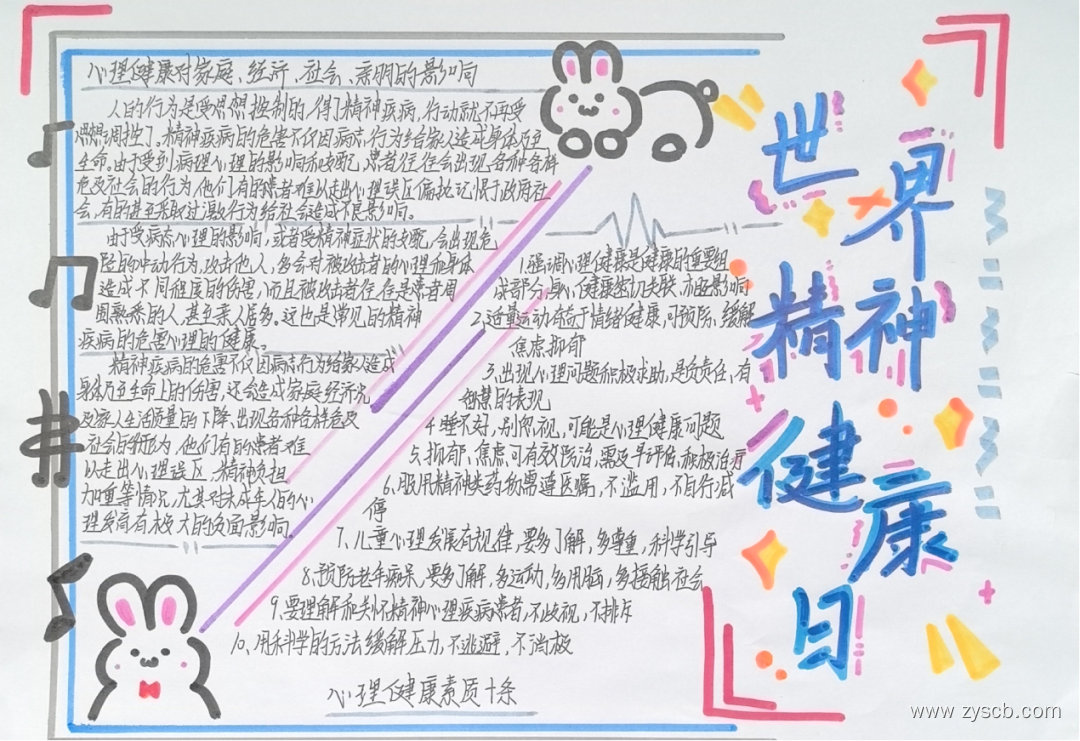 心理健康对家庭、经济、社会、亲朋的影响
人的行为是受思想控制的,得了精神疾病,行动就不再受
思想调控了。精神疾病的危害不仅因病态行为给家人造成身体乃至
生命。由于受到病理心理的影响和支配,患者往往会出现各种各样
危及社会的行为,他们有的患者难以走出心理误区偏执记恨于政府社
会,有的甚至采取过激行为给社会造成不良影响。
由于受病态心理的影响,或者受精神症状的支配,会出现危
险的冲动行为,攻击他人,多会对被攻击者的心理和身体
造成不同程度的伤害,而且被攻击者往往是患者周
围熟悉的人,甚至亲人居多。这也是常见的精神
疾病的危害心理的健康。
精神疾病的危害不仅因病态行为给家人造成
身体乃至生命上的伤害,还会造成家庭经济况
及家人生活质量的下降、出现各种各样危及
社会的行为,他们有的患者难
以走出心理误区,精神负担
加重等情况,尤其对未成年人的心
理发育有极大的负面影响。
1.强调心理健康是健康的重要组
成部分,身心健康密切关联,相互影响
2.适量运动有益于情绪健康,可预防、缓解
焦虑抑郁
3.出现心理问题积极求助,是负责任、有
智慧的表现
4.睡不好,别忽视,可能是心理健康问题
5.抑郁、焦虑可有效防治,需及早评估,积极治疗
6.服用精神类药物需遵医嘱,不滥用,不自行减
停
7、儿童心理发展有规律,要多了解,多尊重,科学引导
8.预防老年痴呆,要多了解,多运动,多用脑,多接触社会
9.要理解和关怀精神心理疾病患者,不歧视,不排斥
10、用科学的方法缓解压力,不逃避,不消极
心理健康素质十条
世界
精神
健康
日
www.zyscb.com